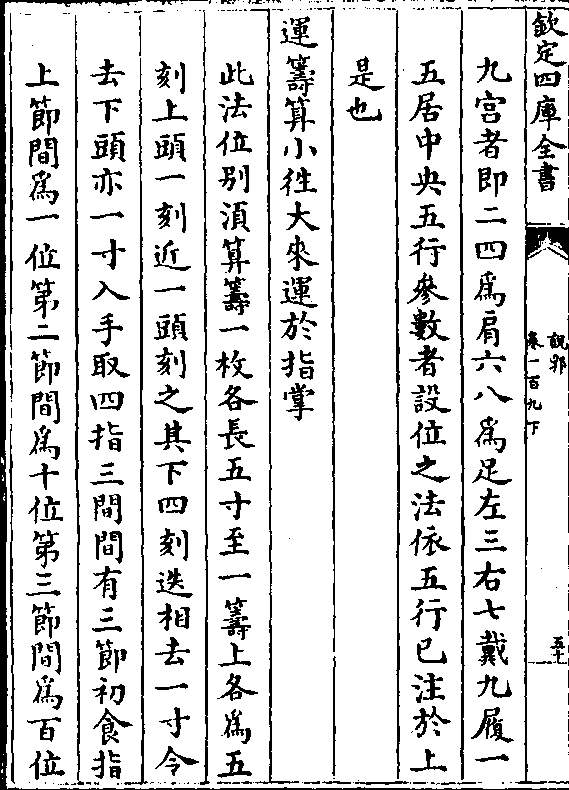 欽定四庫全書
說郛
卷一百九下
五十
九宫者即二四爲肩六八爲足左三右七戴九履一
五居中央五行參數者設位之法依五行已注於上
是也
運籌算小徃大來運於指掌
此法位别湏算籌一枚各長五寸至一籌上各爲五
刻上頭一刻近一頭刻之其下四刻迭相去一寸令
去下頭亦一寸入手取四指三間間有三節初食指
上節間爲一位第二節間爲十位第三節間爲百位